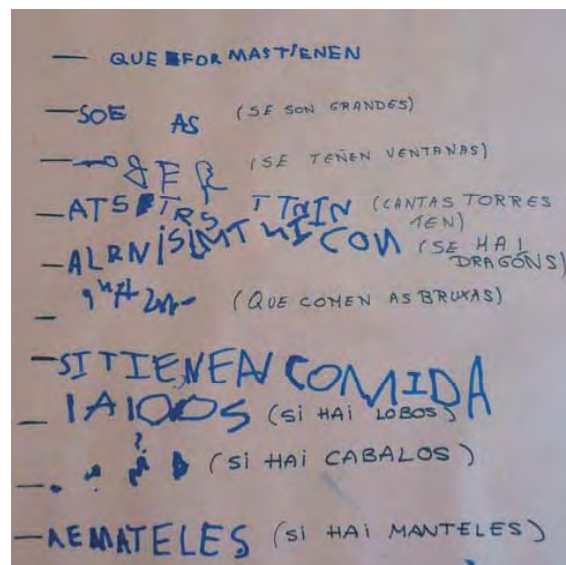 — QUE FORMAS TIENEN
— SOE AS (SE SON GRANDES)
— (SE TEÑEN VENTANAS)
— ATS TRS TTNIN (CANTAS TORRES TEN)
— ALRNISLMT (SE HAI DRAGÓNS)
— (QUE COMEN AS BRUXAS)
— SI TIENEN COMIDA
— IAIOOS (SI HAI LOBOS)
— (SI HAI CABALOS)
— AEMATELES (SI HAI MANTELES)